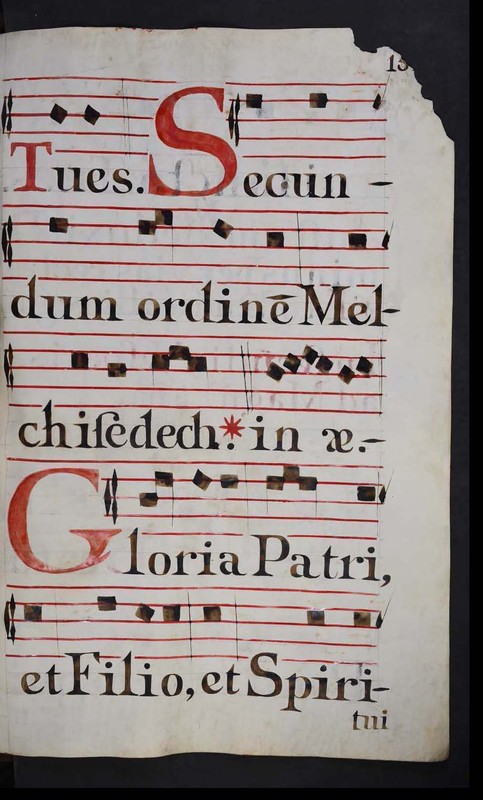 Tues. Secun-
dum ordinē Mel-
chiſedech.* in æ.-
Gloria Patri,
et Filio, et Spiri-
tui